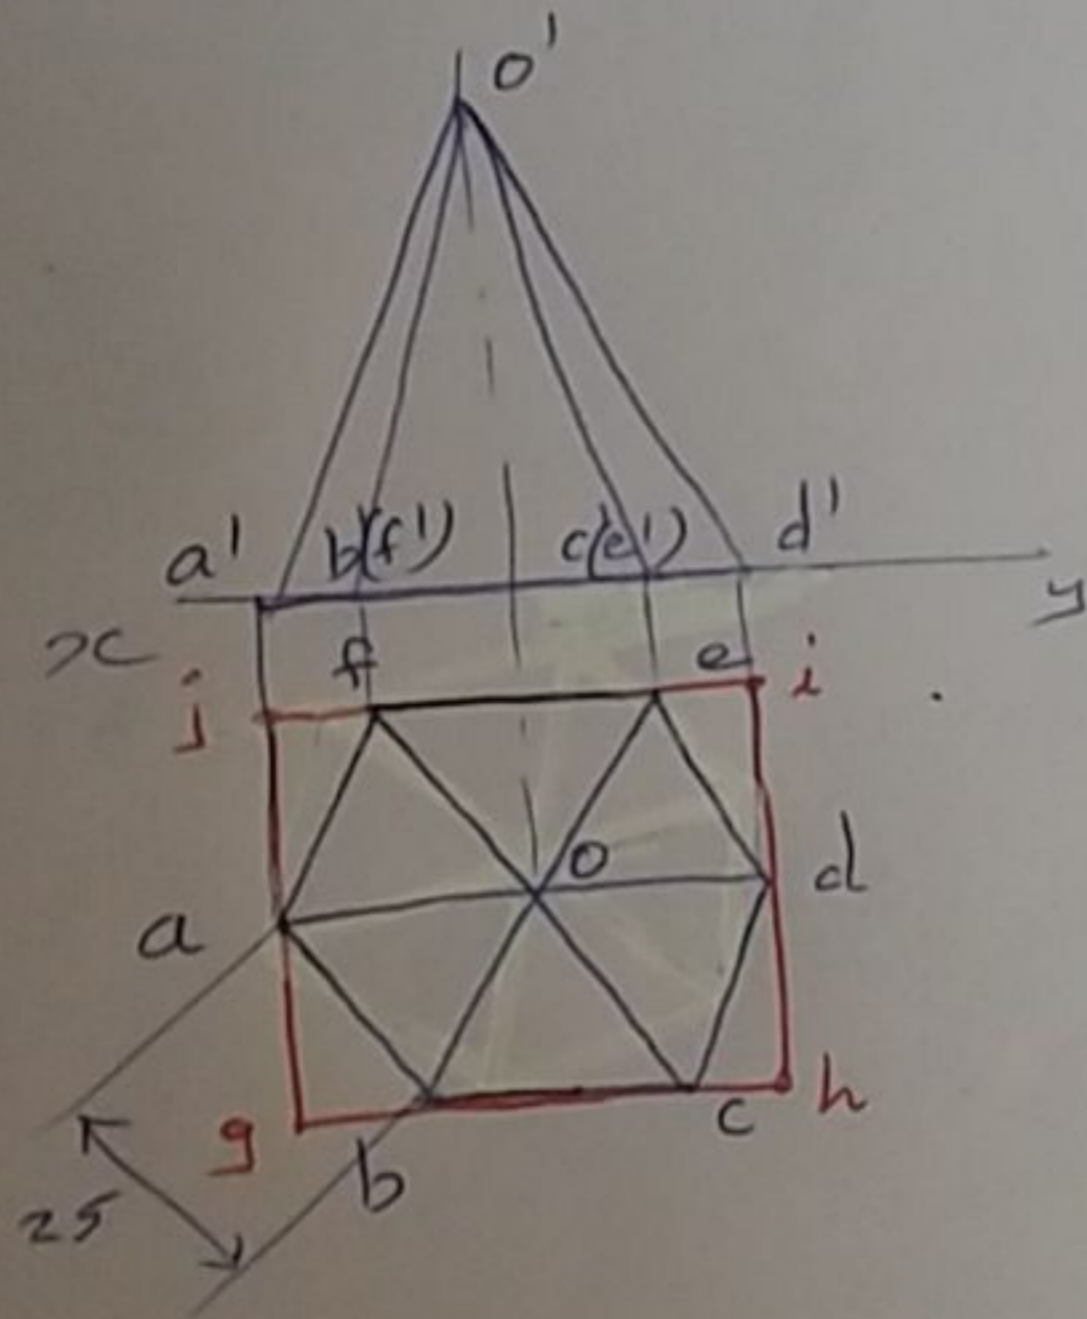 o'
a' b'(f') c'(e') d'
x y
j f e i
o
a d
g b c h
25